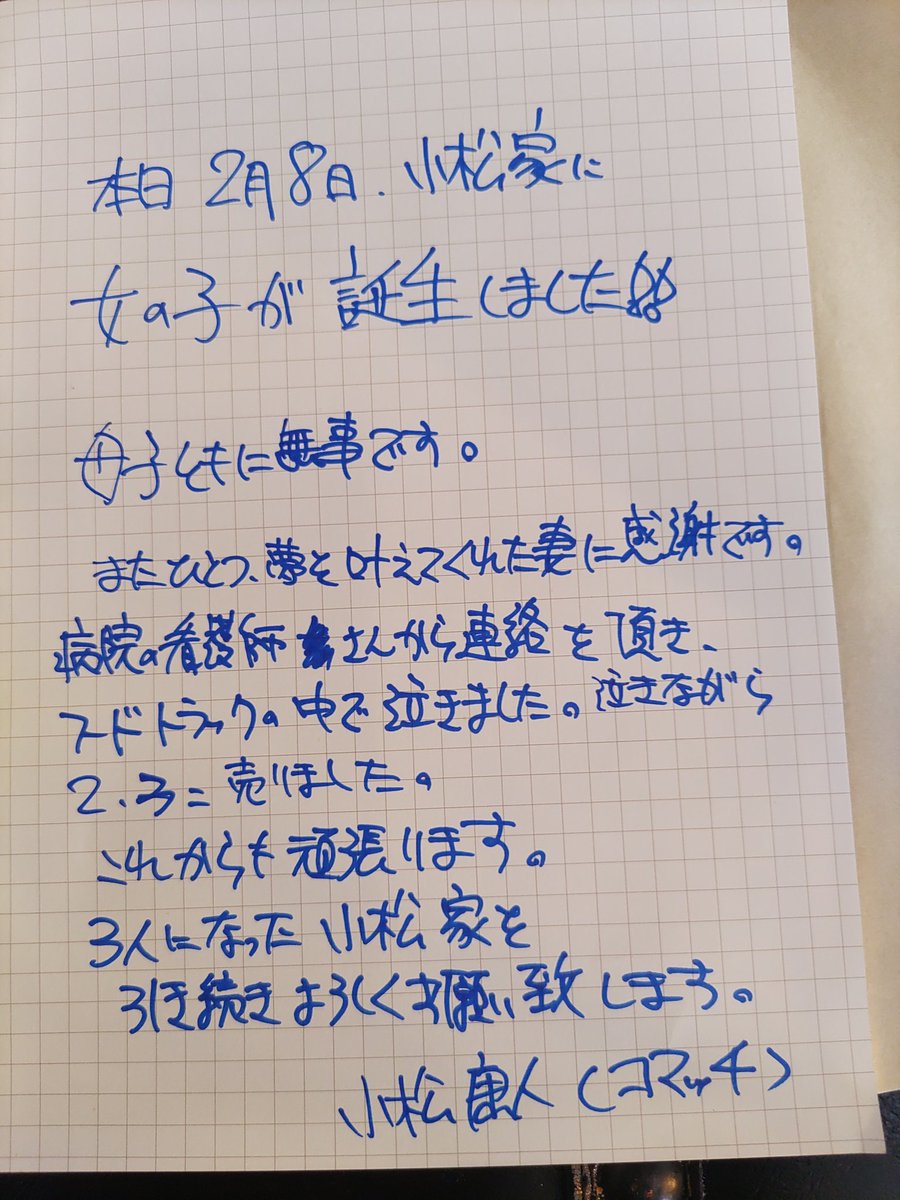 本日 2月8日. 小松家に
女の子が誕生しました!!
母子ともに無事です。
またひとつ、夢を叶えてくれた妻に感謝です。
病院の看護師さんから連絡を頂き、
フードトラックの中で泣きました。泣きながら
2.3コ売りました。
これからも頑張ります。
3人になった小松家を
引き続きよろしくお願い致します。
小松 (コマッチ)